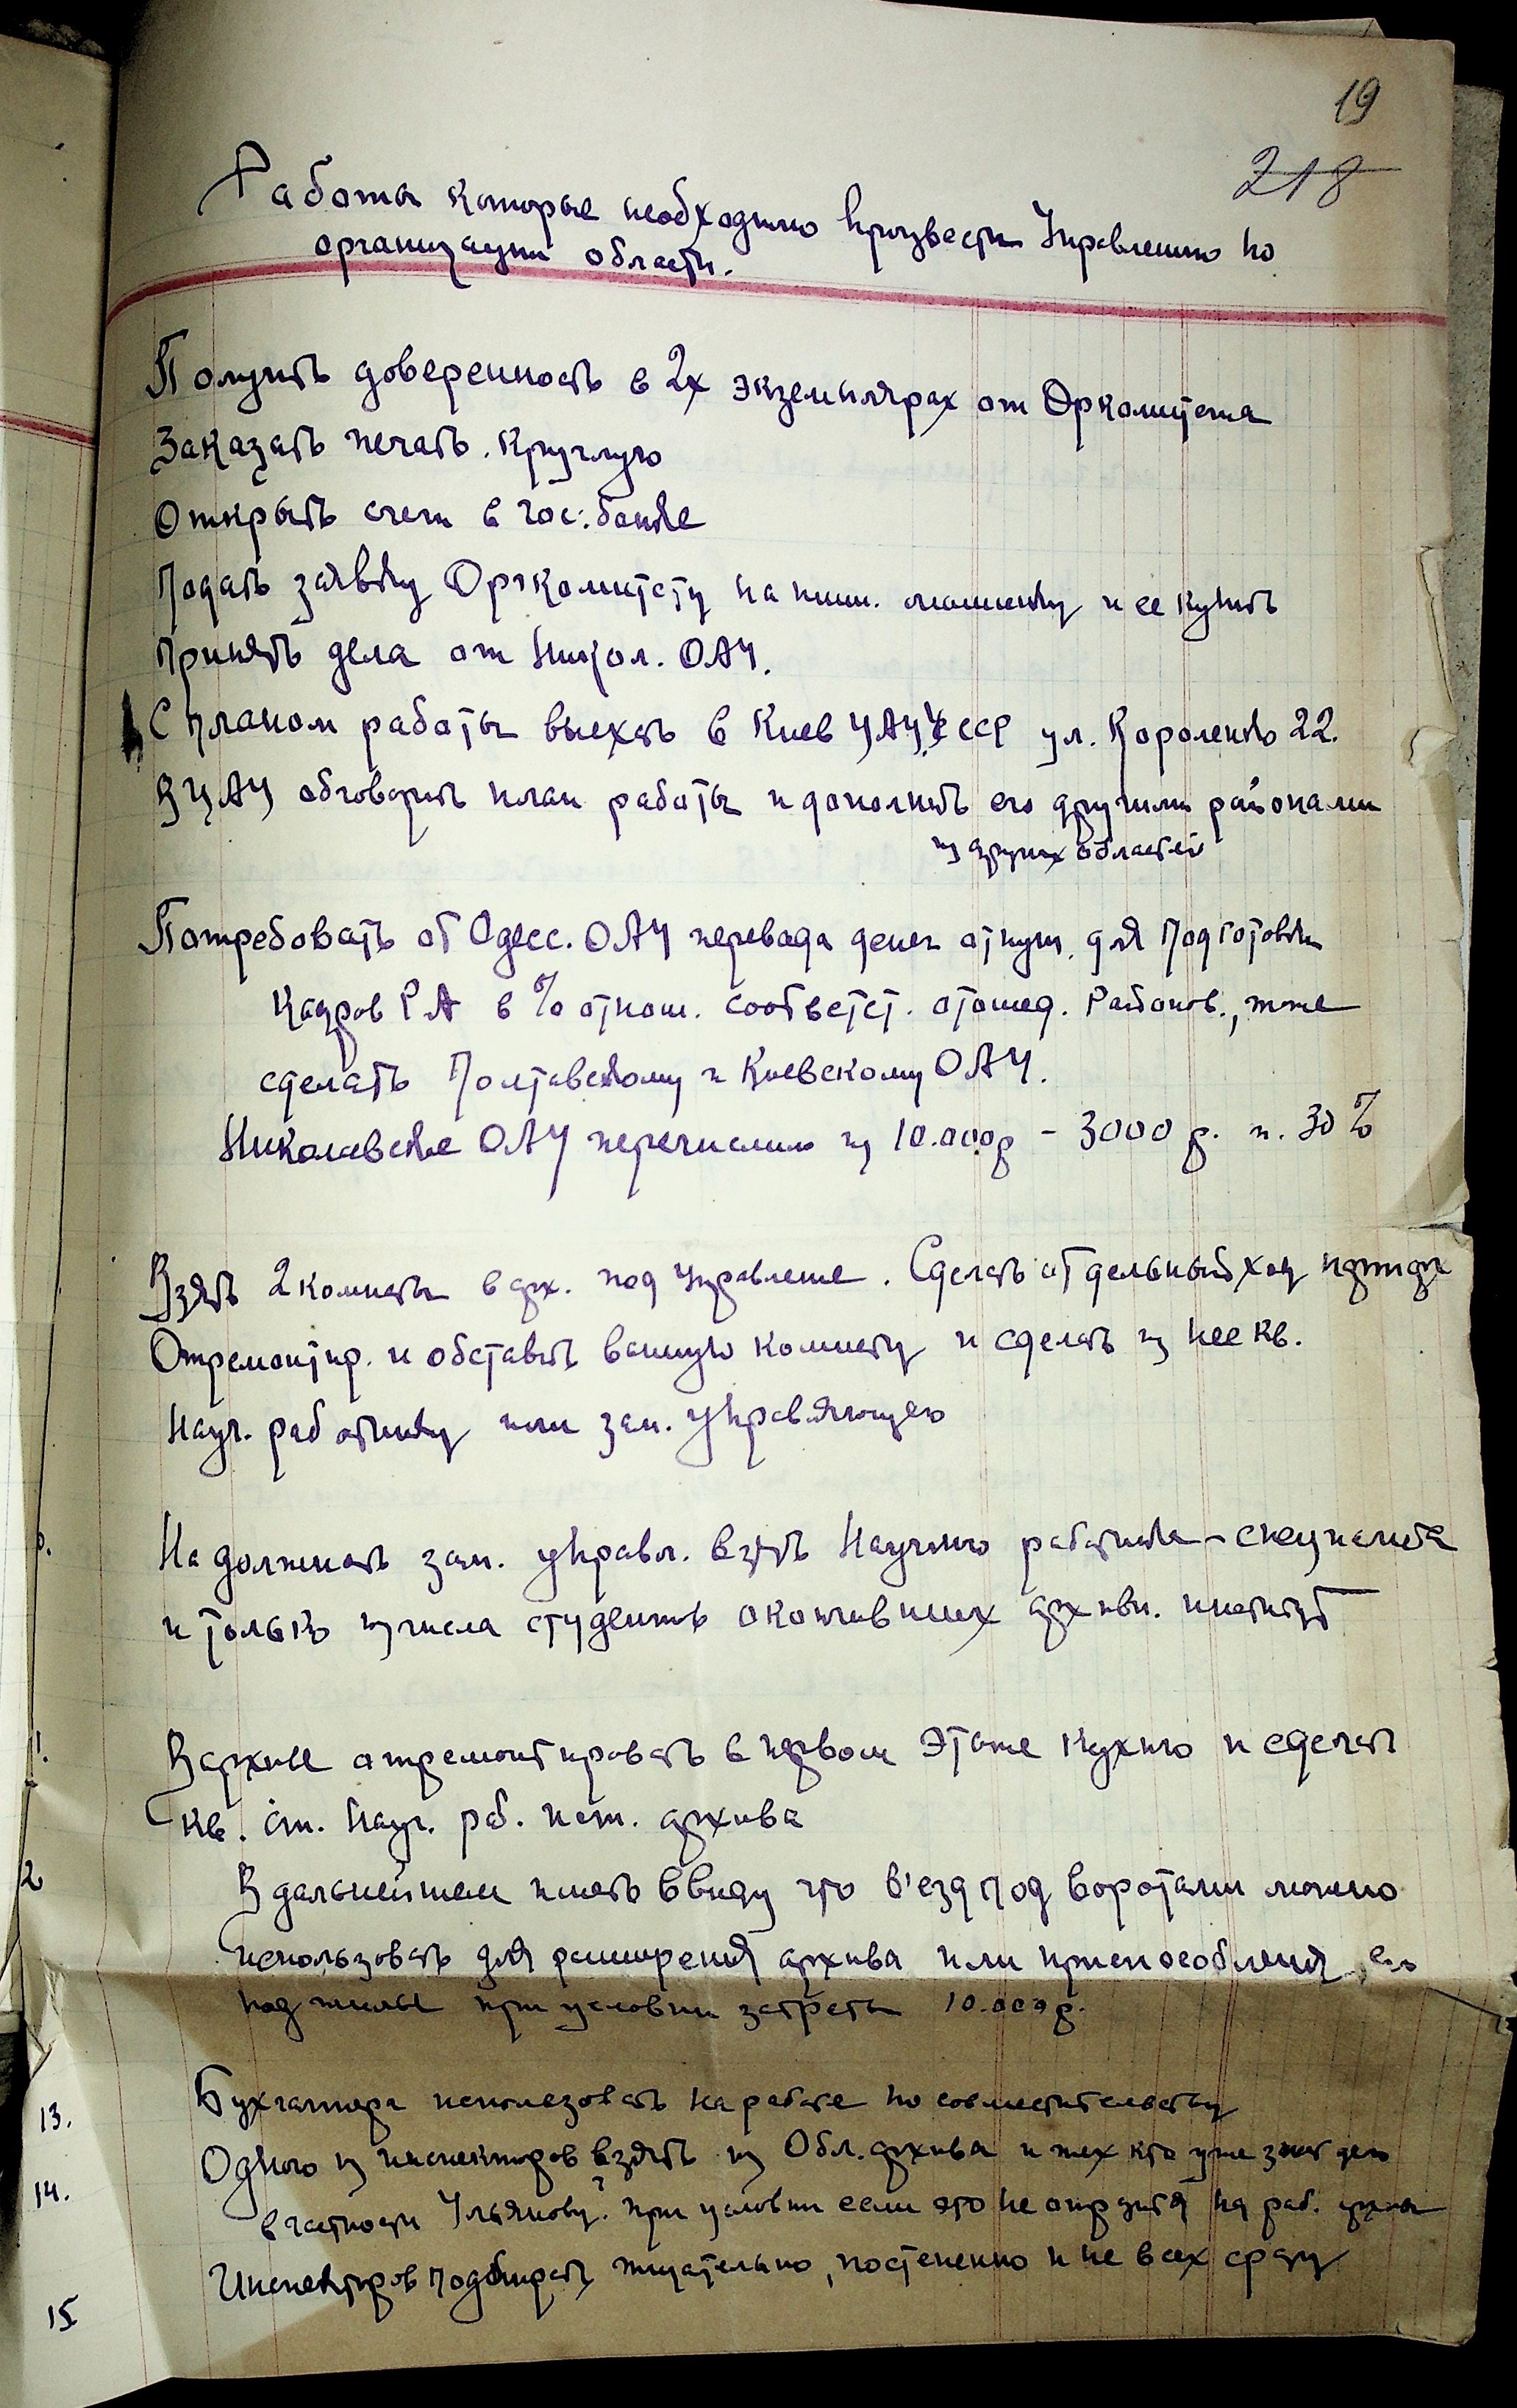 19
218
Работы которые необходимо произвести Управлению по
организации области.
Получить доверенность в 2х экземплярах от Оркомитета
Заказать печать. круглую
Открыть счет в гос. банке
Подать заявку Оргкомитету на пиш. машинку и ее купить
Принять дела от Никол. ОАУ.
С планом работы выехать в Киев ЦАУ УССР ул. Короленко 22.
В ЦАУ обговорить план работы и дополнить его другими районами
из других областей
Потребовать от Одесс. ОАУ перевода денег отпущ. для подготовки
кадров РА в % отнош. соответст. отошед. районов., тоже
сделать Полтавскому и Киевскому ОАУ.
Николаевское ОАУ перечислило из 10.000р - 3000 р. и. 30%
Взять 2 комнаты в арх. под Управление. Сделать отдельный ход
Отремонтир. и обставить ванную комнату и сделать из нее кв.
науч. работнику или зам. управляющего
На должность зам. управл. взять научного работника-специалиста
и только из числа студентов окончивших архивн. институт
11. В архиве отремонтировать в первом этаже кухню и сделать
кв. ст. науч. раб. ист. архива
2 В дальнейшем иметь ввиду что в'езд под воротами можно
использовать для расширения архива или приспособления его
под жилье при условии затраты 10.000р.
13. Бухгалтера использовать на работе по совместительству
14. Одного из инспекторов взять из Обл. архива и тех кто уже знает дело
в частности Ульянову? при условии если это не отразится на раб. архива
15 Инспекторов подбирать тщательно, постепенно и не всех сразу